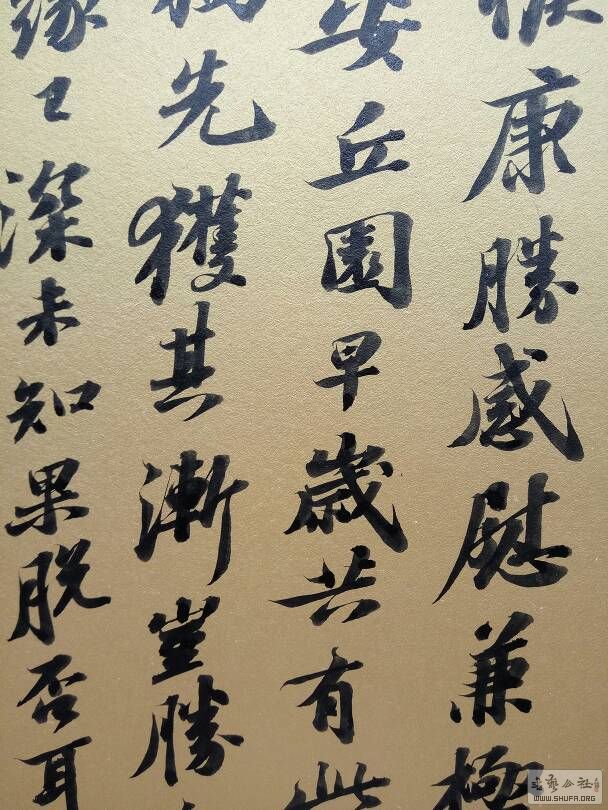 候康勝感慰兼極
安丘園早歲共有此
獨先獲其漸豈勝
緣已深未知果脫否耳
书艺公社
WWW.SHUFA.ORG